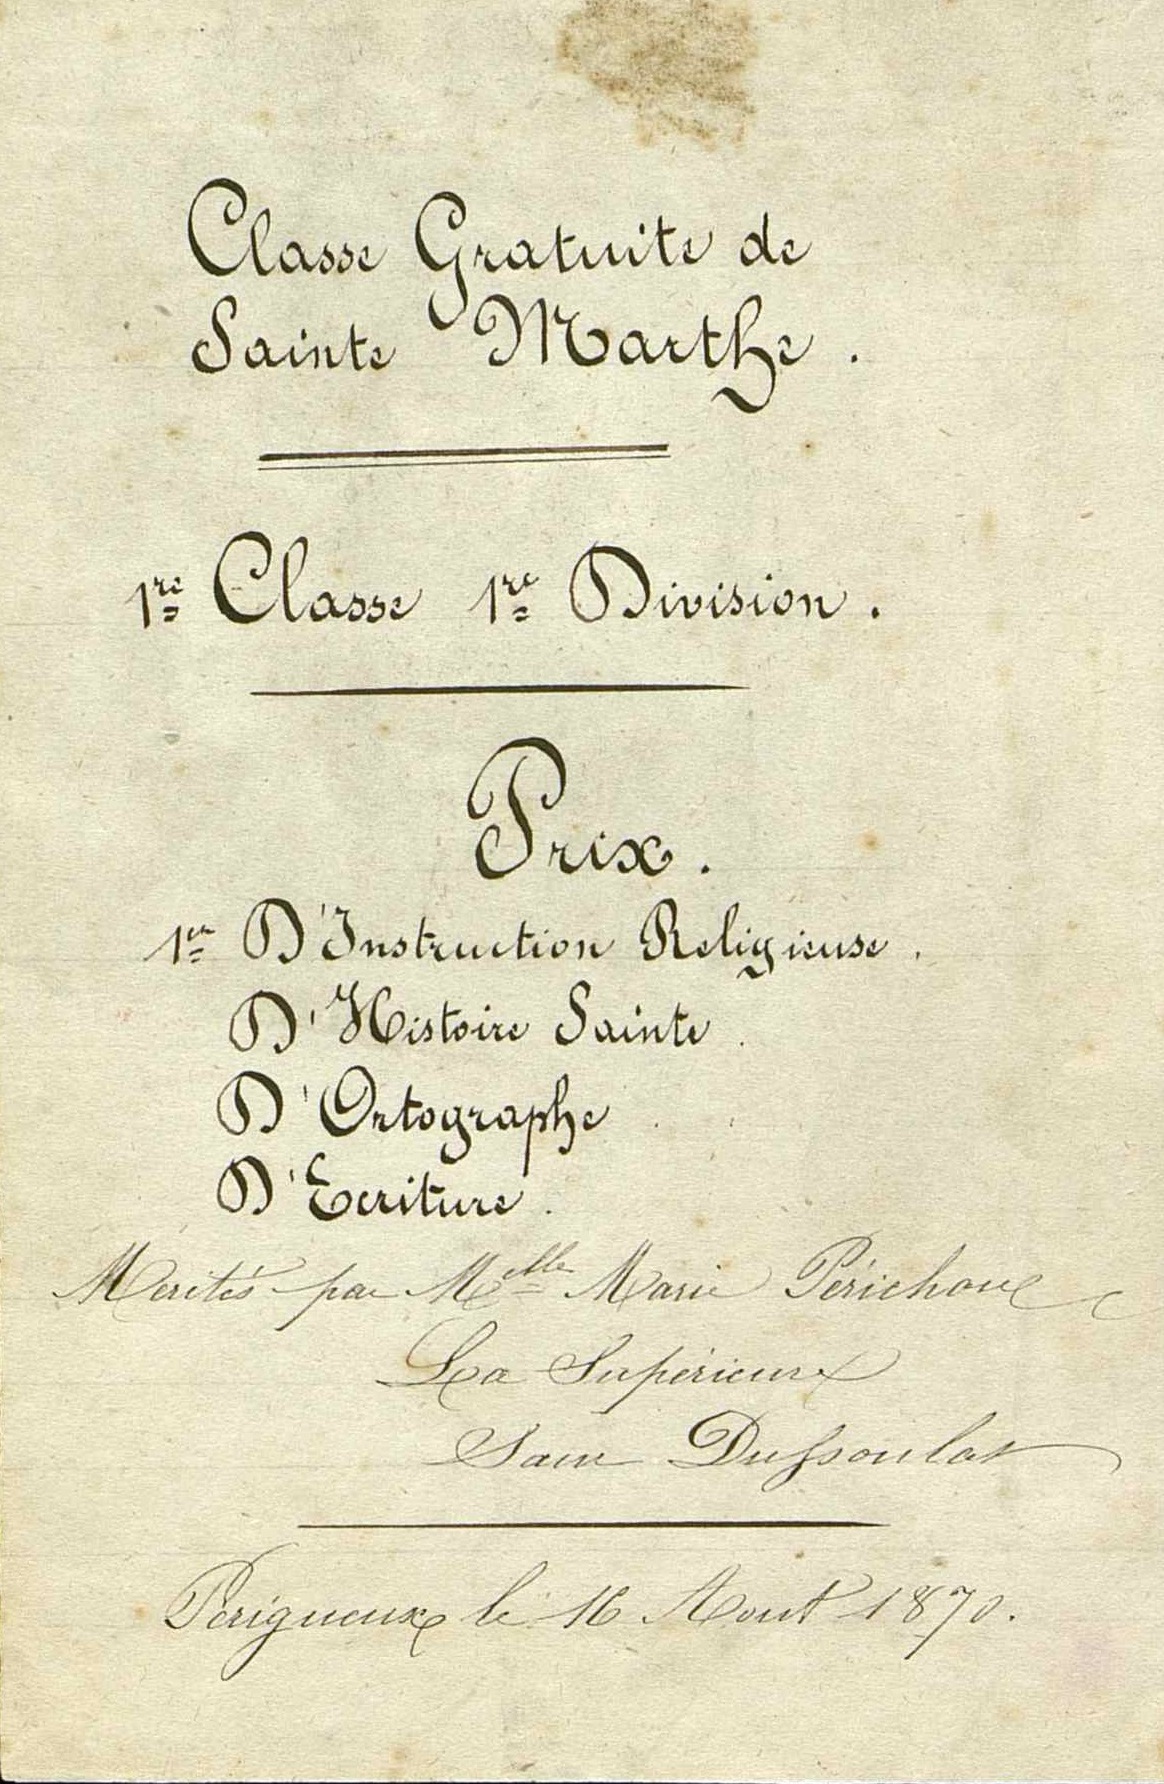 Classe Gratuite de
Sainte Marthe.
1re Classe 1re Division.
Prix.
1er D'Instruction Religieuse.
D'Histoire Sainte.
D'Ortographe.
D'Ecriture.
Mérités par Melle Marie
La Supérieure
Sœur Dussoulat
Périgueux le 16 Aout 1870.